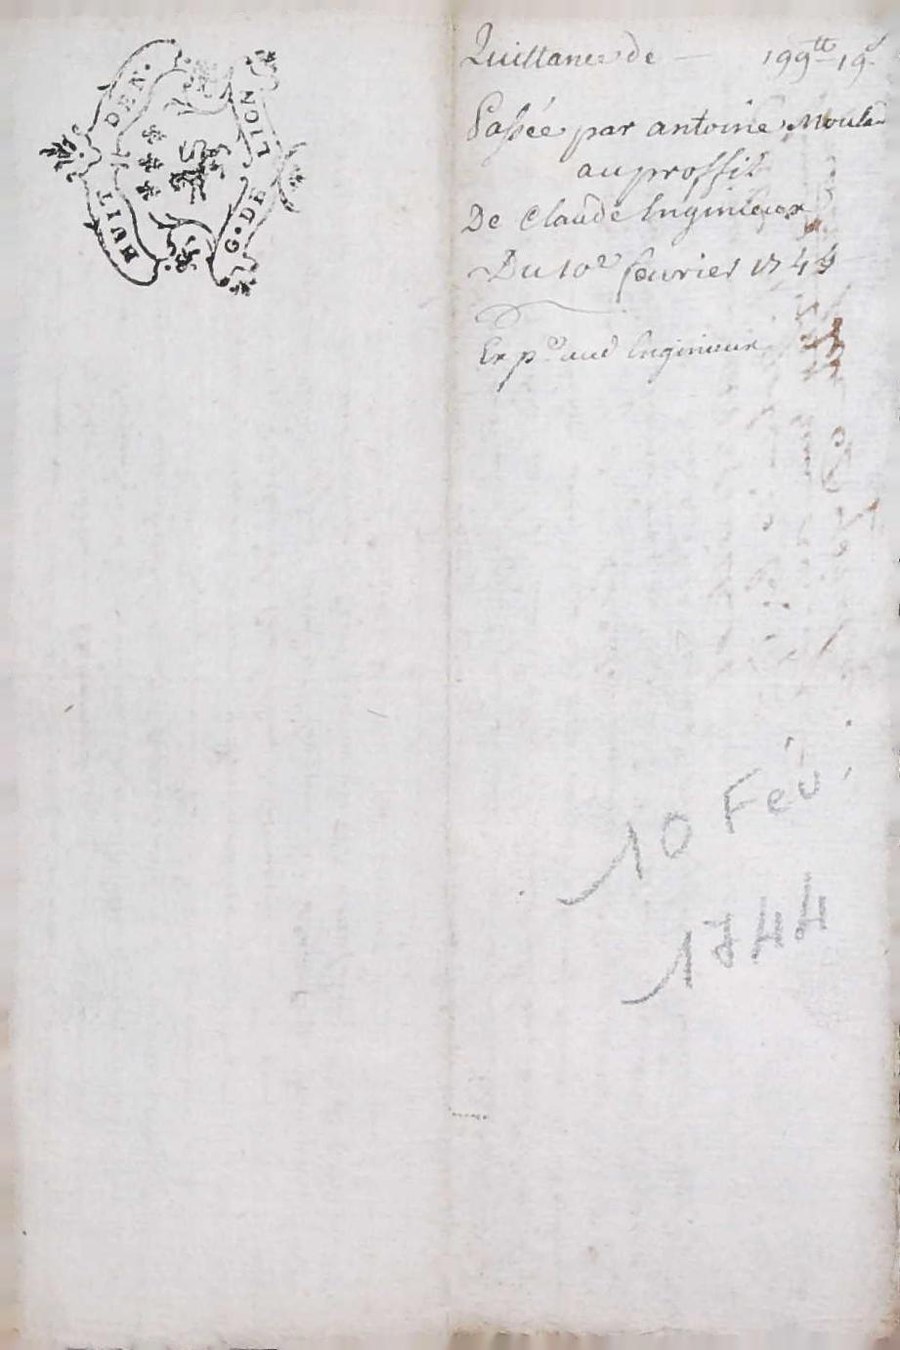 HUIT DEN.
G. DE LION
Quittance de — 199tt 19s
Passée par antoine Moula
au proffit
De Claude Enginieux
Du 10e fevrier 1744
Ex pn aud Enginieux
10 Fév
1744